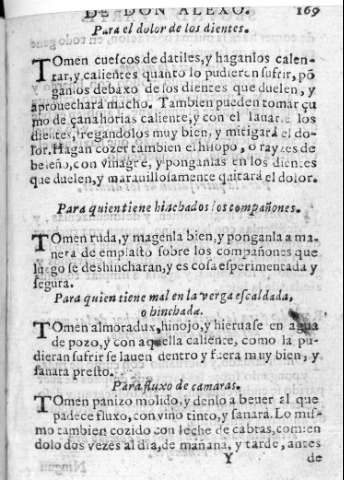 DE DON ALEXO. 169
Para el dolor de los dientes.
TOmen cuescos de datiles, y haganlos calen-
tar, y calientes quanto lo pudieren sufrir, põ
ganlos debaxo de los dientes que duelen, y
aprouechará mucho. Tambien pueden tomar çu
mo de çanahorias caliente, y con el lauarse los
dientes, regandolos muy bien, y mitigará el do-
lor. Hagan cozer tambien el hisopo, o rayzes de
beleño, con vinagre, y ponganlas en los dientes
que duelen, y marauillosamente quitará el dolor.
Para quien tiene hinchados los compañones.
TOmen ruda, y magenla bien, y ponganla a ma-
nera de emplasto sobre los compañones que
luego se deshincharan, y es cosa esperimentada y
segura.
Para quien tiene mal en la verga escaldada,
o hinchada.
TOmen almoradux, hinojo, y hieruase en agua
de pozo, y con aquella caliente, como la pu-
dieran sufrir se lauen dentro y fuera muy bien, y
sanara presto.
Para fluxo de camaras.
TOmen panizo molido, y denlo a beuer al que
padece fluxo, con vino tinto, y sanará. Lo mis-
mo tambien cozido con leche de cabras, comien
dolo dos vezes al dia, de mañana, y tarde, antes
Y de